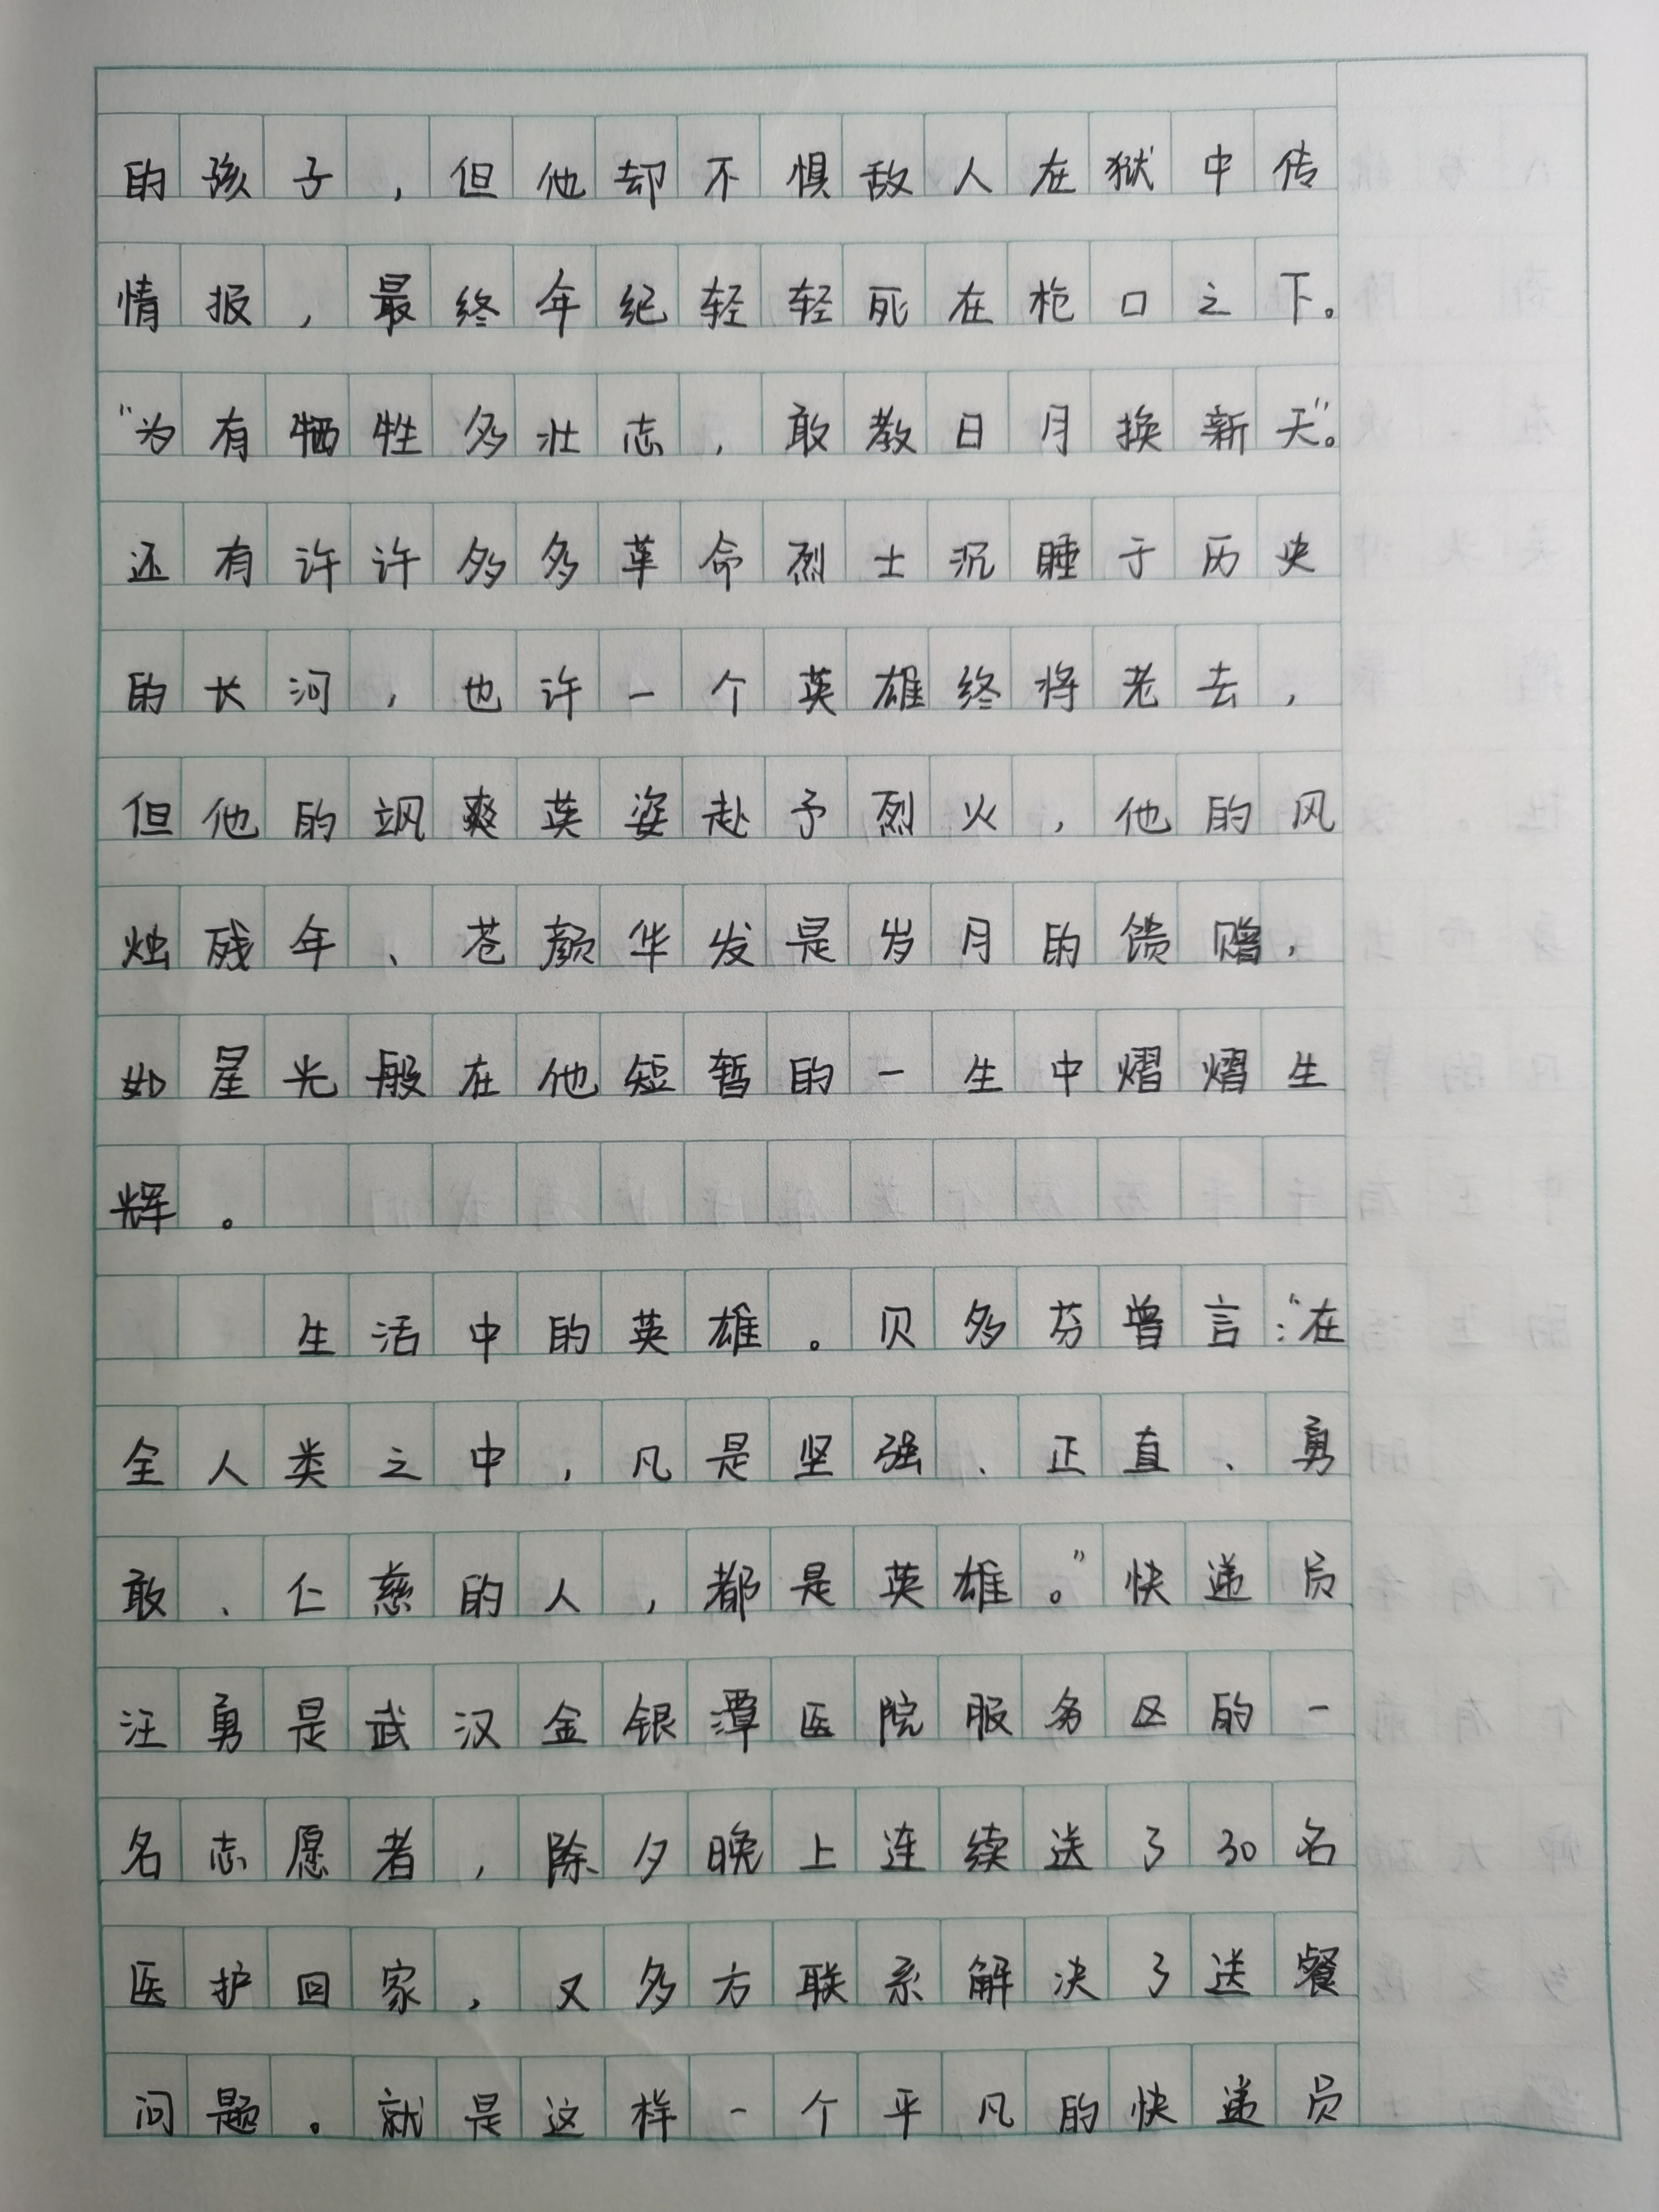 的孩子，但他却不惧敌人在狱中传
情报，最终年纪轻轻死在枪口之下。
“为有牺牲多壮志，敢教日月换新天”。
还有许许多多革命烈士沉睡于历史
的长河，也许一个英雄终将老去，
但他的飒爽英姿赴予烈火，他的风
烛残年、苍颜华发是岁月的馈赠，
如星光般在他短暂的一生中熠熠生
辉。
生活中的英雄。贝多芬曾言：“在
全人类之中，凡是坚强、正直、勇
敢、仁慈的人，都是英雄。”快递员
汪勇是武汉金银潭医院服务区的一
名志愿者，除夕晚上连续送了30名
医护回家，又多方联系解决了送餐
问题。就是这样一个平凡的快递员